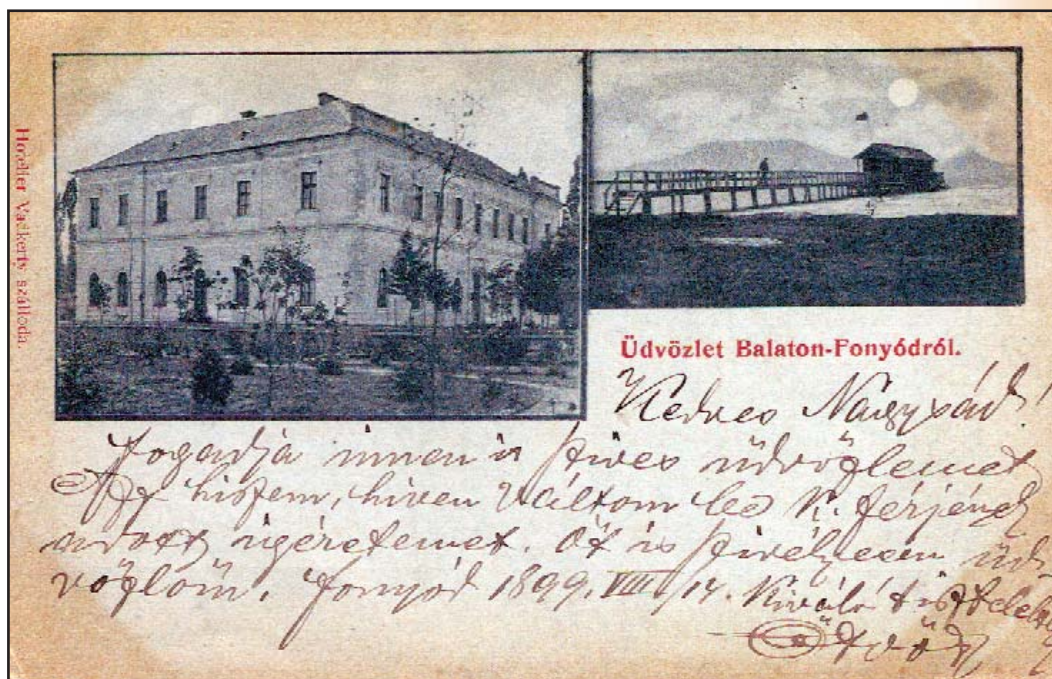 Hotelier Vadkerty szálloda.
Üdvözlet Balaton-Fonyódról.
Kedves Nagysád!
Fogadja innen is szives üdvözlemet
Azt hiszem, hiven váltom be K. férjének
adott igéretemet. Őt is szivélyesen üd-
vözlöm. Fonyód 1899. VIII/14. Kiváló tisztelettel